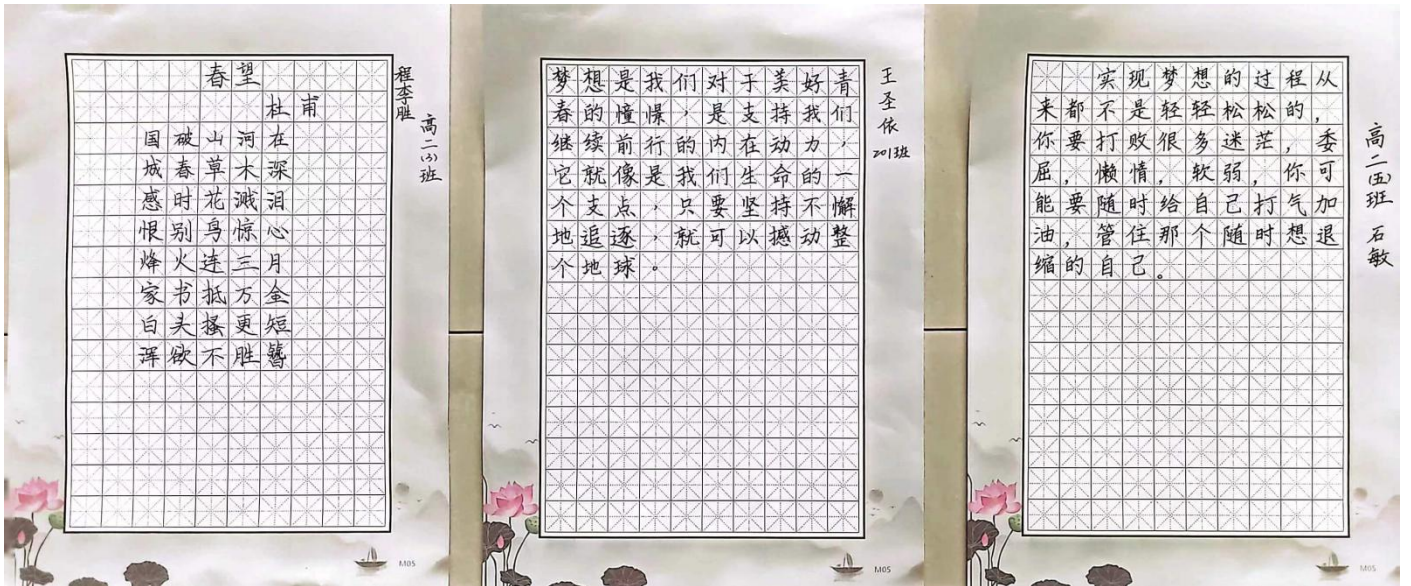 春望
杜甫
国破山河在
城春草木深
感时花溅泪
恨别鸟惊心
烽火连三月
家书抵万金
白头搔更短
浑欲不胜簪
程李胜
高二(3)班
M05
梦想是我们对于美好青
春的憧憬，是支持我们
继续前行的内在动力，
它就像是我们生命的一
个支点，只要坚持不懈
地追逐，就可以撼动整
个地球。
王圣依
201班
M05
实现梦想的过程从
来都不是轻轻松松的，
你要打败很多迷茫，委
屈，懒惰，软弱，你可
能要随时给自己打气加
油，管住那个随时想退
缩的自己。
高二(五)班 石敏
M05